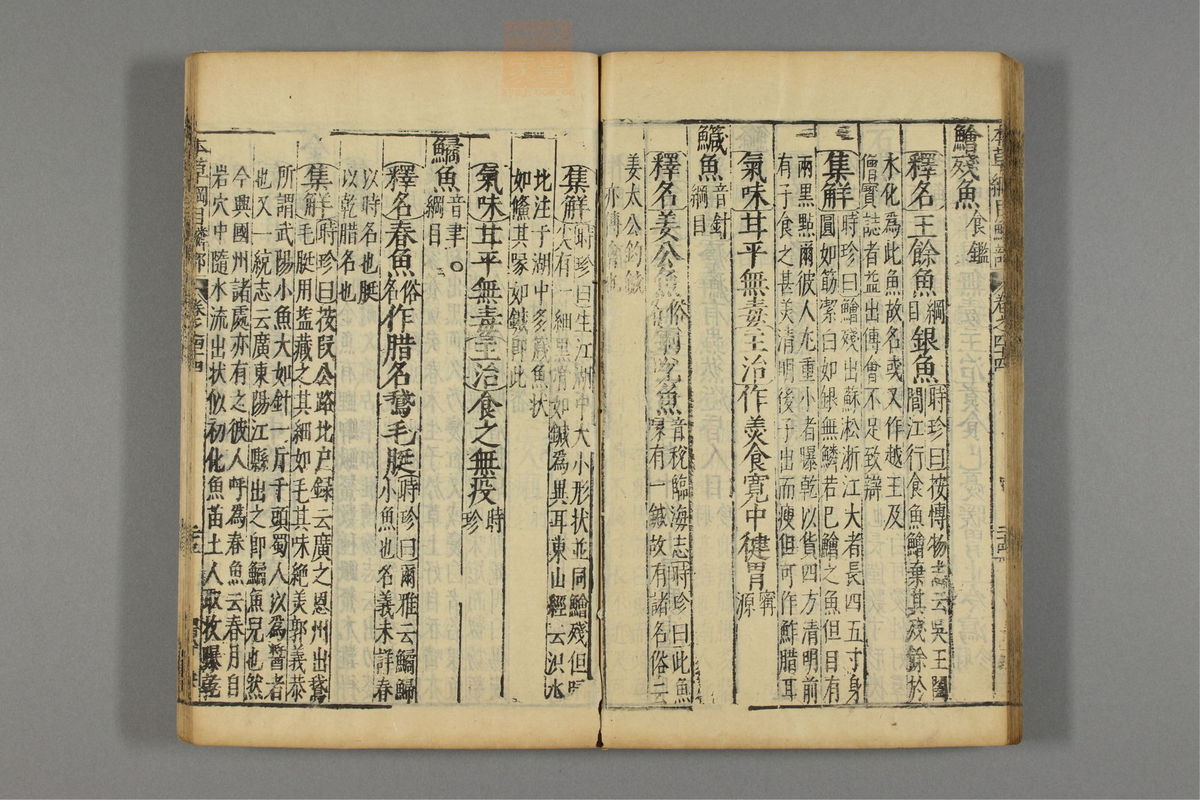 本草綱目鱗部 卷之四十四 二十四
鱠殘魚食鑑
釋名王餘魚綱目銀魚時珍曰按博物志云吳王闔
閭江行食魚鱠棄其殘餘於
水化為此魚故名或又作越王及
僧寶誌者益出傳會不足致辯
集解時珍曰鱠殘出蘇淞浙江大者長四五寸身
圓如筯潔白如銀無鱗若已鱠之魚但目有
兩黑點爾彼人尤重小者曝乾以貨四方清明前
有子食之甚美清明後子出而瘦但可作鮓腊耳
氣味甘平無毒主治作羹食寬中健胃甯
源
鱵魚音針
綱目
釋名姜公魚俗名 哾魚音稅臨海志時珍曰此魚
喙有一鍼故有諸名俗云
姜太公釣鍼
亦傅會也
集解時珍曰生江湖中大小形狀並同鱠殘但喙
尖有一細黑骨如鍼為異耳東山經云泚水
北注于湖中多箴魚狀
如鰷其喙如鍼即此
氣味甘平無毒主治食之無疫時
珍
鱊魚音聿
綱目
釋名春魚俗名作腊名鵞毛脡時珍曰爾雅云鱊鯞
小魚也名義未詳春
以時名也脡
以乾腊名也
集解時珍曰按段公路北户録云廣之恩州出鵞
毛脡用盐藏之其細如毛其味絶美郭義恭
所謂武陽小魚大如針一斤千頭蜀人以為醬者
也又一統志云廣東陽江縣出之即鱊魚兒也然
今興國州諸處亦有之彼人呼為春魚云春月自
岩穴中隨水流出狀似初化魚苗土人取收曝乾
本草綱目鱗部 卷之四十四 二十五